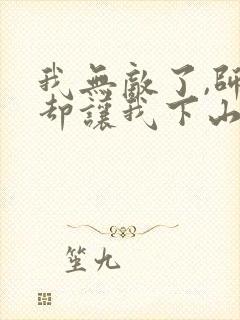 我無敵了,師
却讓我下山
笙九